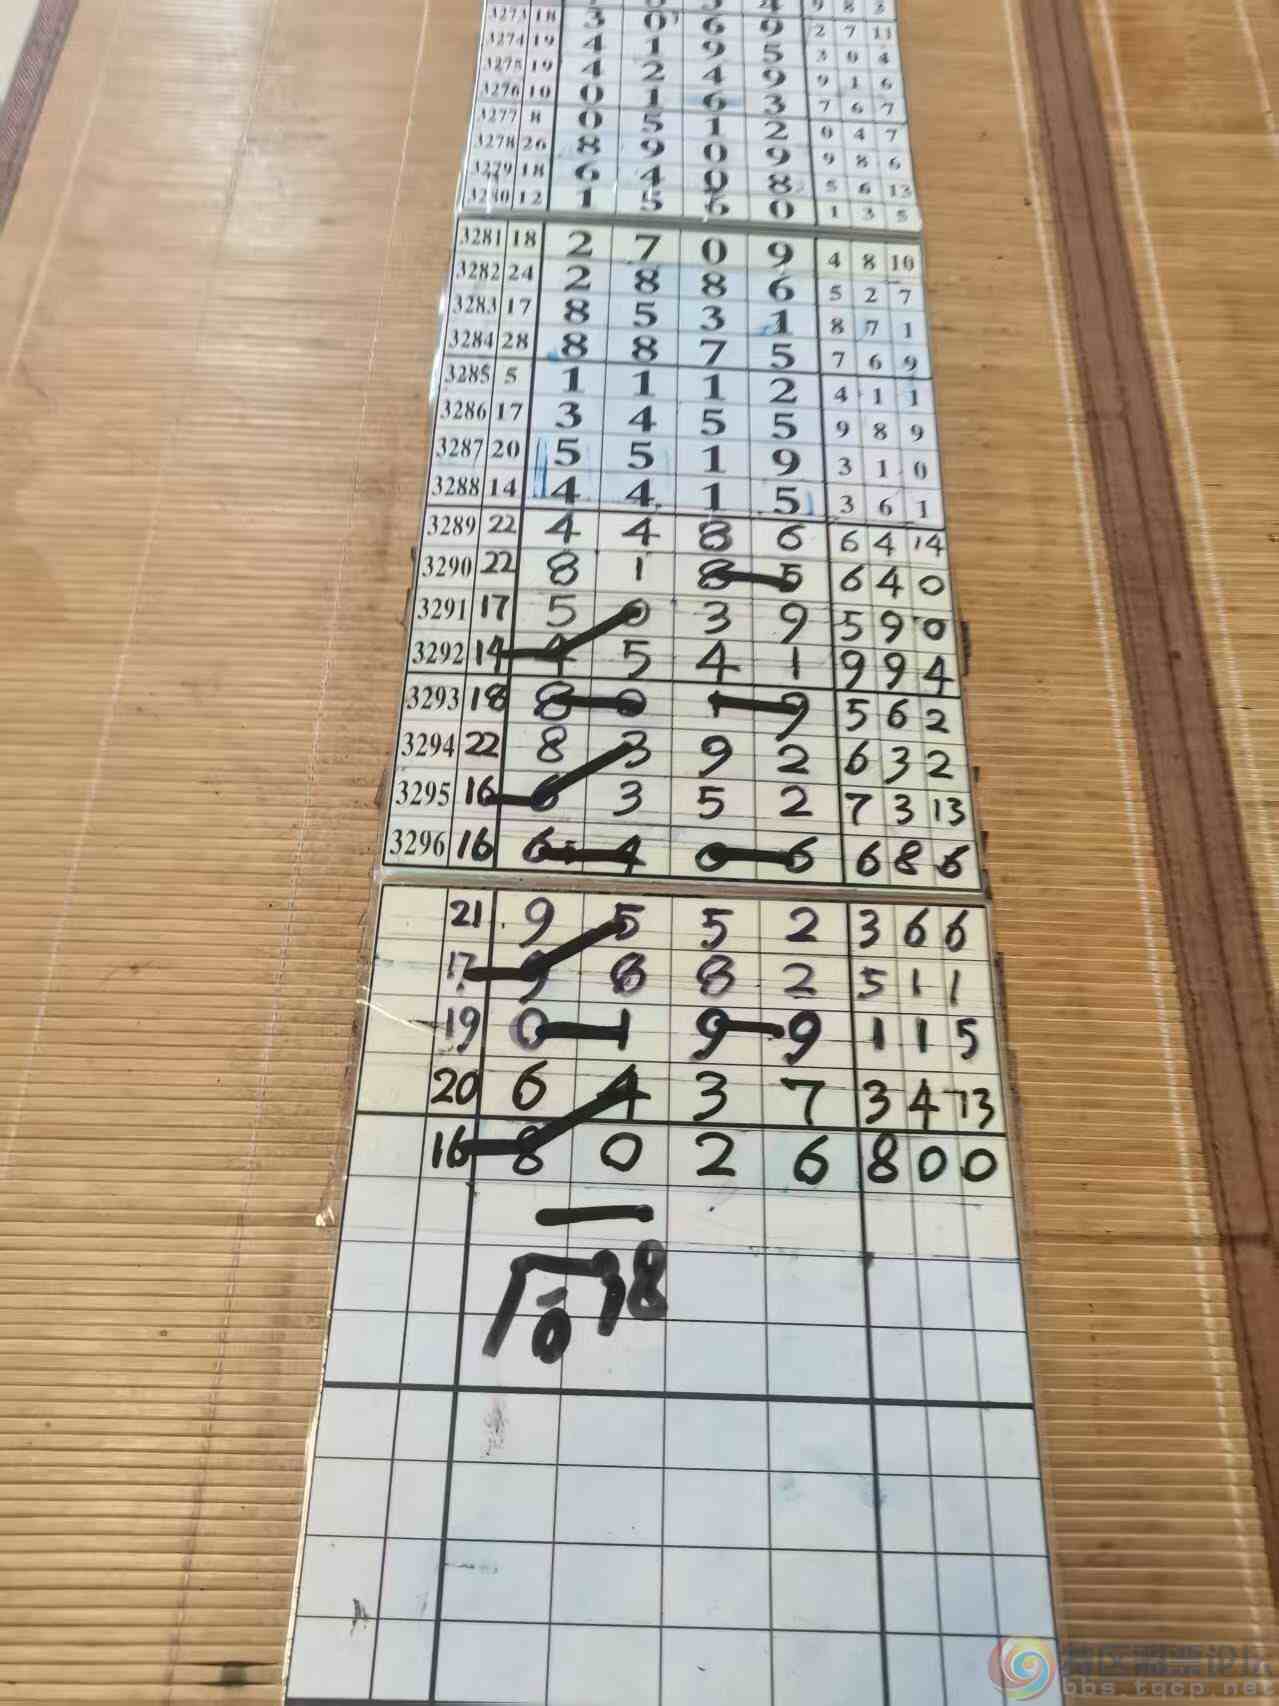 3273 18 3 0 6 9 2 7 11
3274 19 4 1 9 5 3 0 4
3275 19 4 2 4 9 9 1 6
3276 10 0 1 6 3 7 6 7
3277 8 0 5 1 2 0 4 7
3278 26 8 9 0 9 9 8 6
3279 18 6 4 0 8 5 6 13
3280 12 1 5 6 0 1 3 5
3281 18 2 7 0 9 4 8 10
3282 24 2 8 8 6 5 2 7
3283 17 8 5 3 1 8 7 1
3284 28 8 8 7 5 7 6 9
3285 5 1 1 1 2 4 1 1
3286 17 3 4 5 5 9 8 9
3287 20 5 5 1 9 3 1 0
3288 14 4 4 1 5 3 6 1
3289 22 4 4 8 6 6 4 14
3290 22 8 1 8 5 6 4 0
3291 17 5 0 3 9 5 9 0
3292 14 4 5 4 1 9 9 4
3293 18 8 0 1 9 5 6 2
3294 22 8 3 9 2 6 3 2
3295 16 6 3 5 2 7 3 13
3296 16 6 4 0 6 6 8 6
21 9 5 5 2 3 6 6
17 9 8 8 2 5 1 1
19 0 1 9 9 1 1 5
20 6 4 3 7 3 4 13
16 8 0 2 6 8 0 0
8
0
bbs.tgcp.net